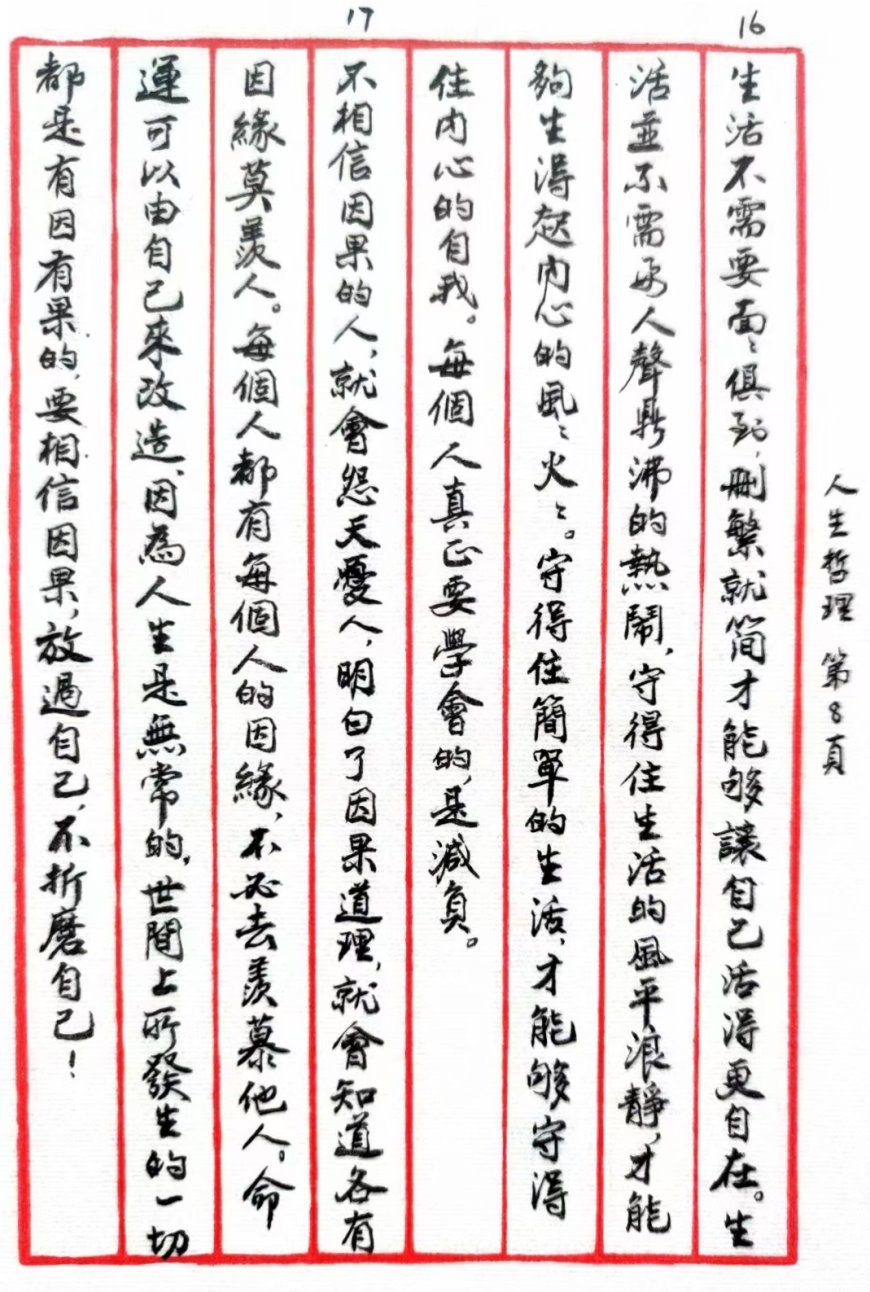 人生哲理 第8頁
16
生活不需要面〻俱到,刪繁就简才能够讓自己活得更自在。生
活並不需要人聲鼎沸的熱鬧,守得住生活的風平浪靜,才能
夠生得起內心的風〻火〻。守得住簡單的生活,才能够守得
住內心的自我。每個人真正要學會的,是減負。
17
不相信因果的人,就會怨天憂人,明白了因果道理,就會知道各有
因緣莫羨人。每個人都有每個人的因緣,不必去羨慕他人。命
運可以由自己來改造,因為人生是無常的,世間上所發生的一切
都是有因有果的,要相信因果,放過自己,不折磨自己!